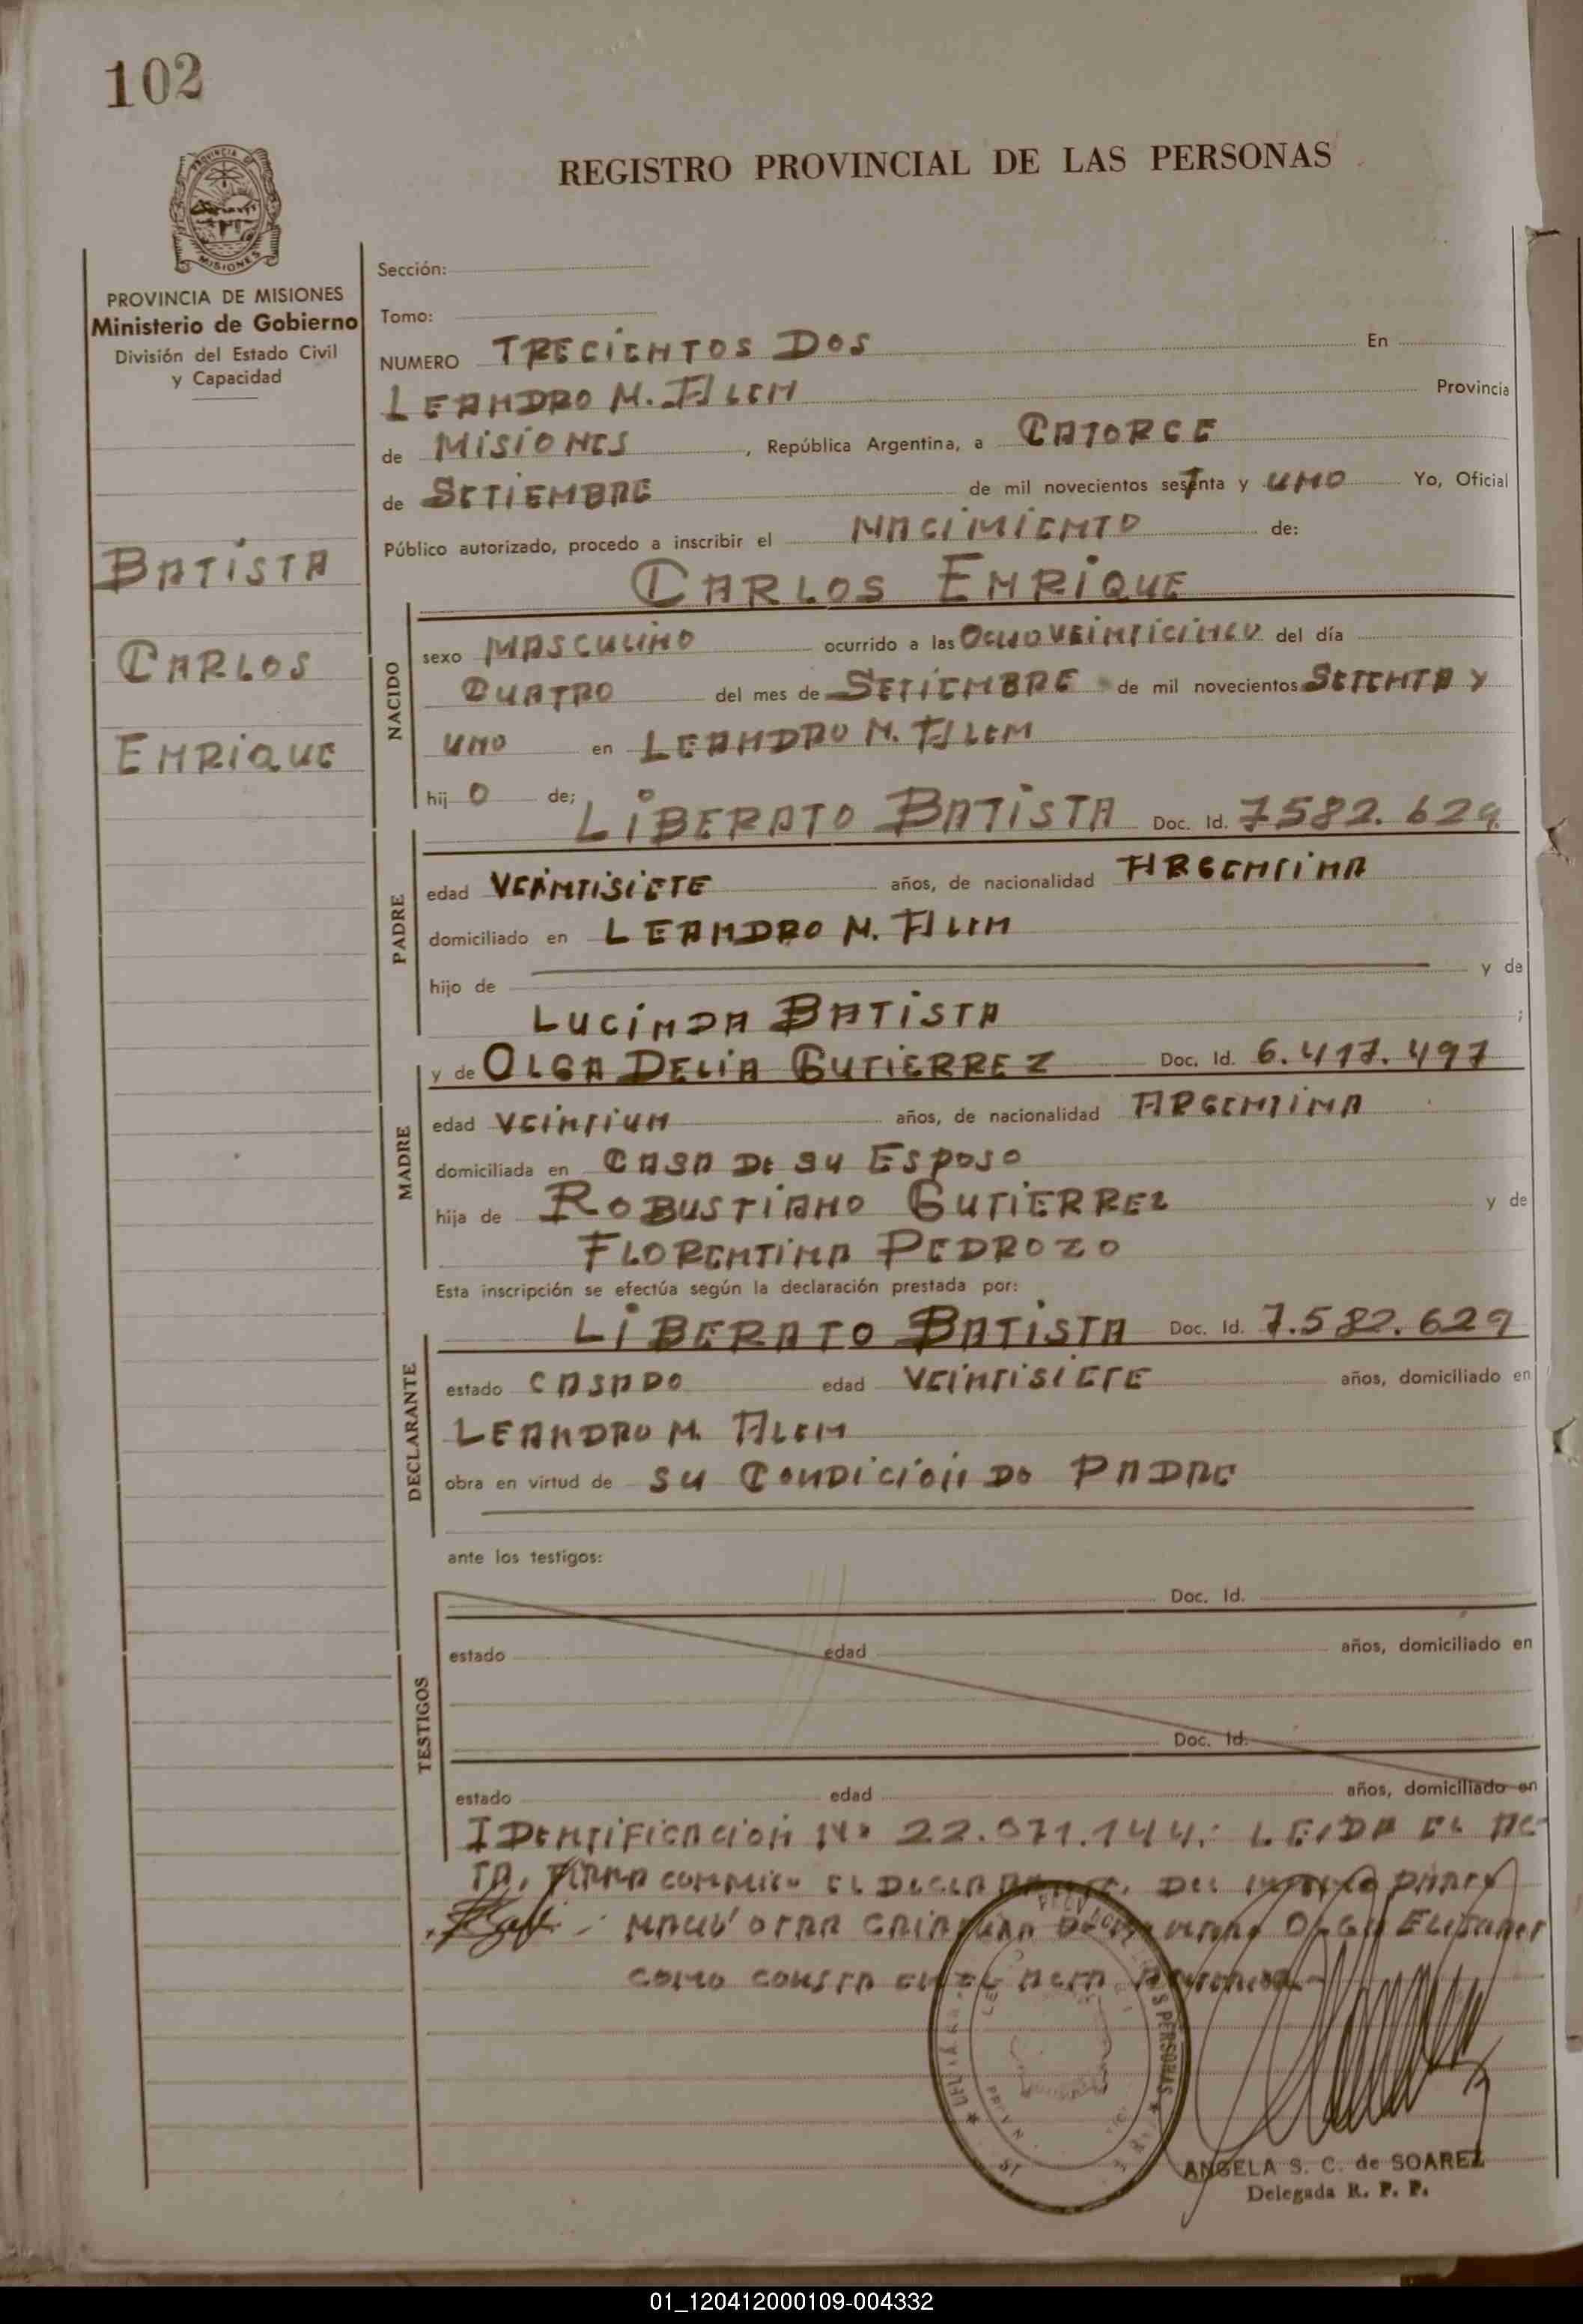 102
PROVINCIA DE MISIONES
MISIONES
PROVINCIA DE MISIONES
Ministerio de Gobierno
División del Estado Civil
y Capacidad
BATISTA
CARLOS
ENRIQUE
REGISTRO PROVINCIAL DE LAS PERSONAS
Sección:
Tomo:
NUMERO TRECIENTOS DOS En
LEANDRO N. ALEM Provincia
de MISIONES, República Argentina, a CATORCE
de SETIEMBRE de mil novecientos setenta y UNO Yo, Oficial
Público autorizado, procedo a inscribir el NACIMIENTO de:
CARLOS ENRIQUE
NACIDO
sexo MASCULINO ocurrido a las OCHO VEINTICINCO del día
CUATRO del mes de SETIEMBRE de mil novecientos SETENTA Y
UNO en LEANDRO N. ALEM
hijO de; LIBERATO BATISTA Doc. Id. 7582.629
PADRE
edad VEINTISIETE años, de nacionalidad ARGENTINA
domiciliado en LEANDRO N. ALEM
hijo de y de
LUCINDA BATISTA ;
y de OLGA DELIA GUTIERREZ Doc. Id. 6.417.497
MADRE
edad VEINTIUN años, de nacionalidad ARGENTINA
domiciliada en CASA DE SU ESPOSO
hija de ROBUSTIANO GUTIERREZ y de
FLORENTINA PEDROZO
Esta inscripción se efectúa según la declaración prestada por:
LIBERATO BATISTA Doc. Id. 7.582.629
DECLARANTE
estado CASADO edad VEINTISIETE años, domiciliado en
LEANDRO N. ALEM
obra en virtud de SU CONDICION DE PADRE
ante los testigos:
TESTIGOS
Doc. Id.
estado edad años, domiciliado en
Doc. Id.
estado edad años, domiciliado en
IDENTIFICACION Nº 22.071.144.- LEIDA EL AC-
TA, FIRMA CONMIGO EL DECLARANTE. DEL MISMO PARTO
NACIÓ OTRA OLGA ELIZABET
COMO CONSTA EN EL ACTA
PERSONAS
ANGELA S. C. de SOAREZ
Delegada R. P. P.
01_120412000109-004332